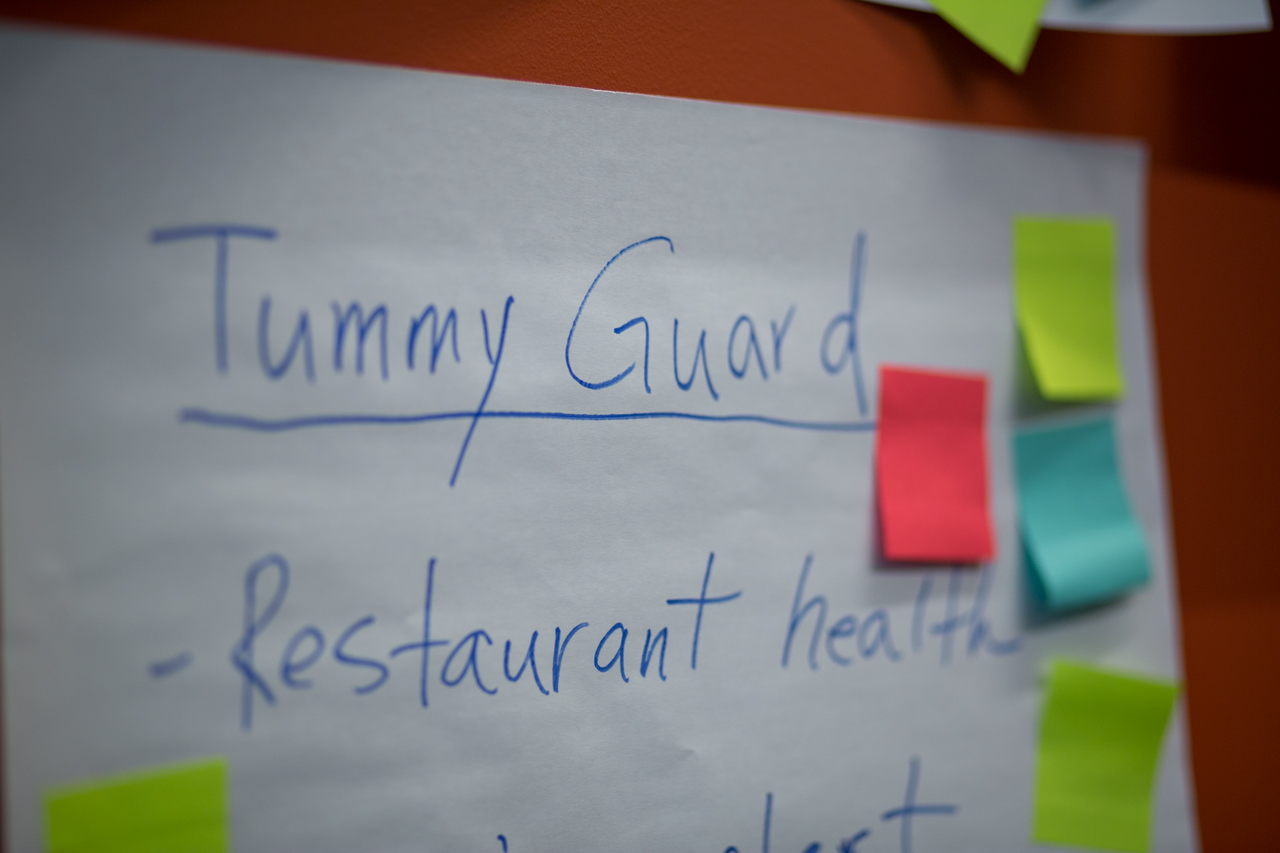 Tummy Guard
- Restaurant health